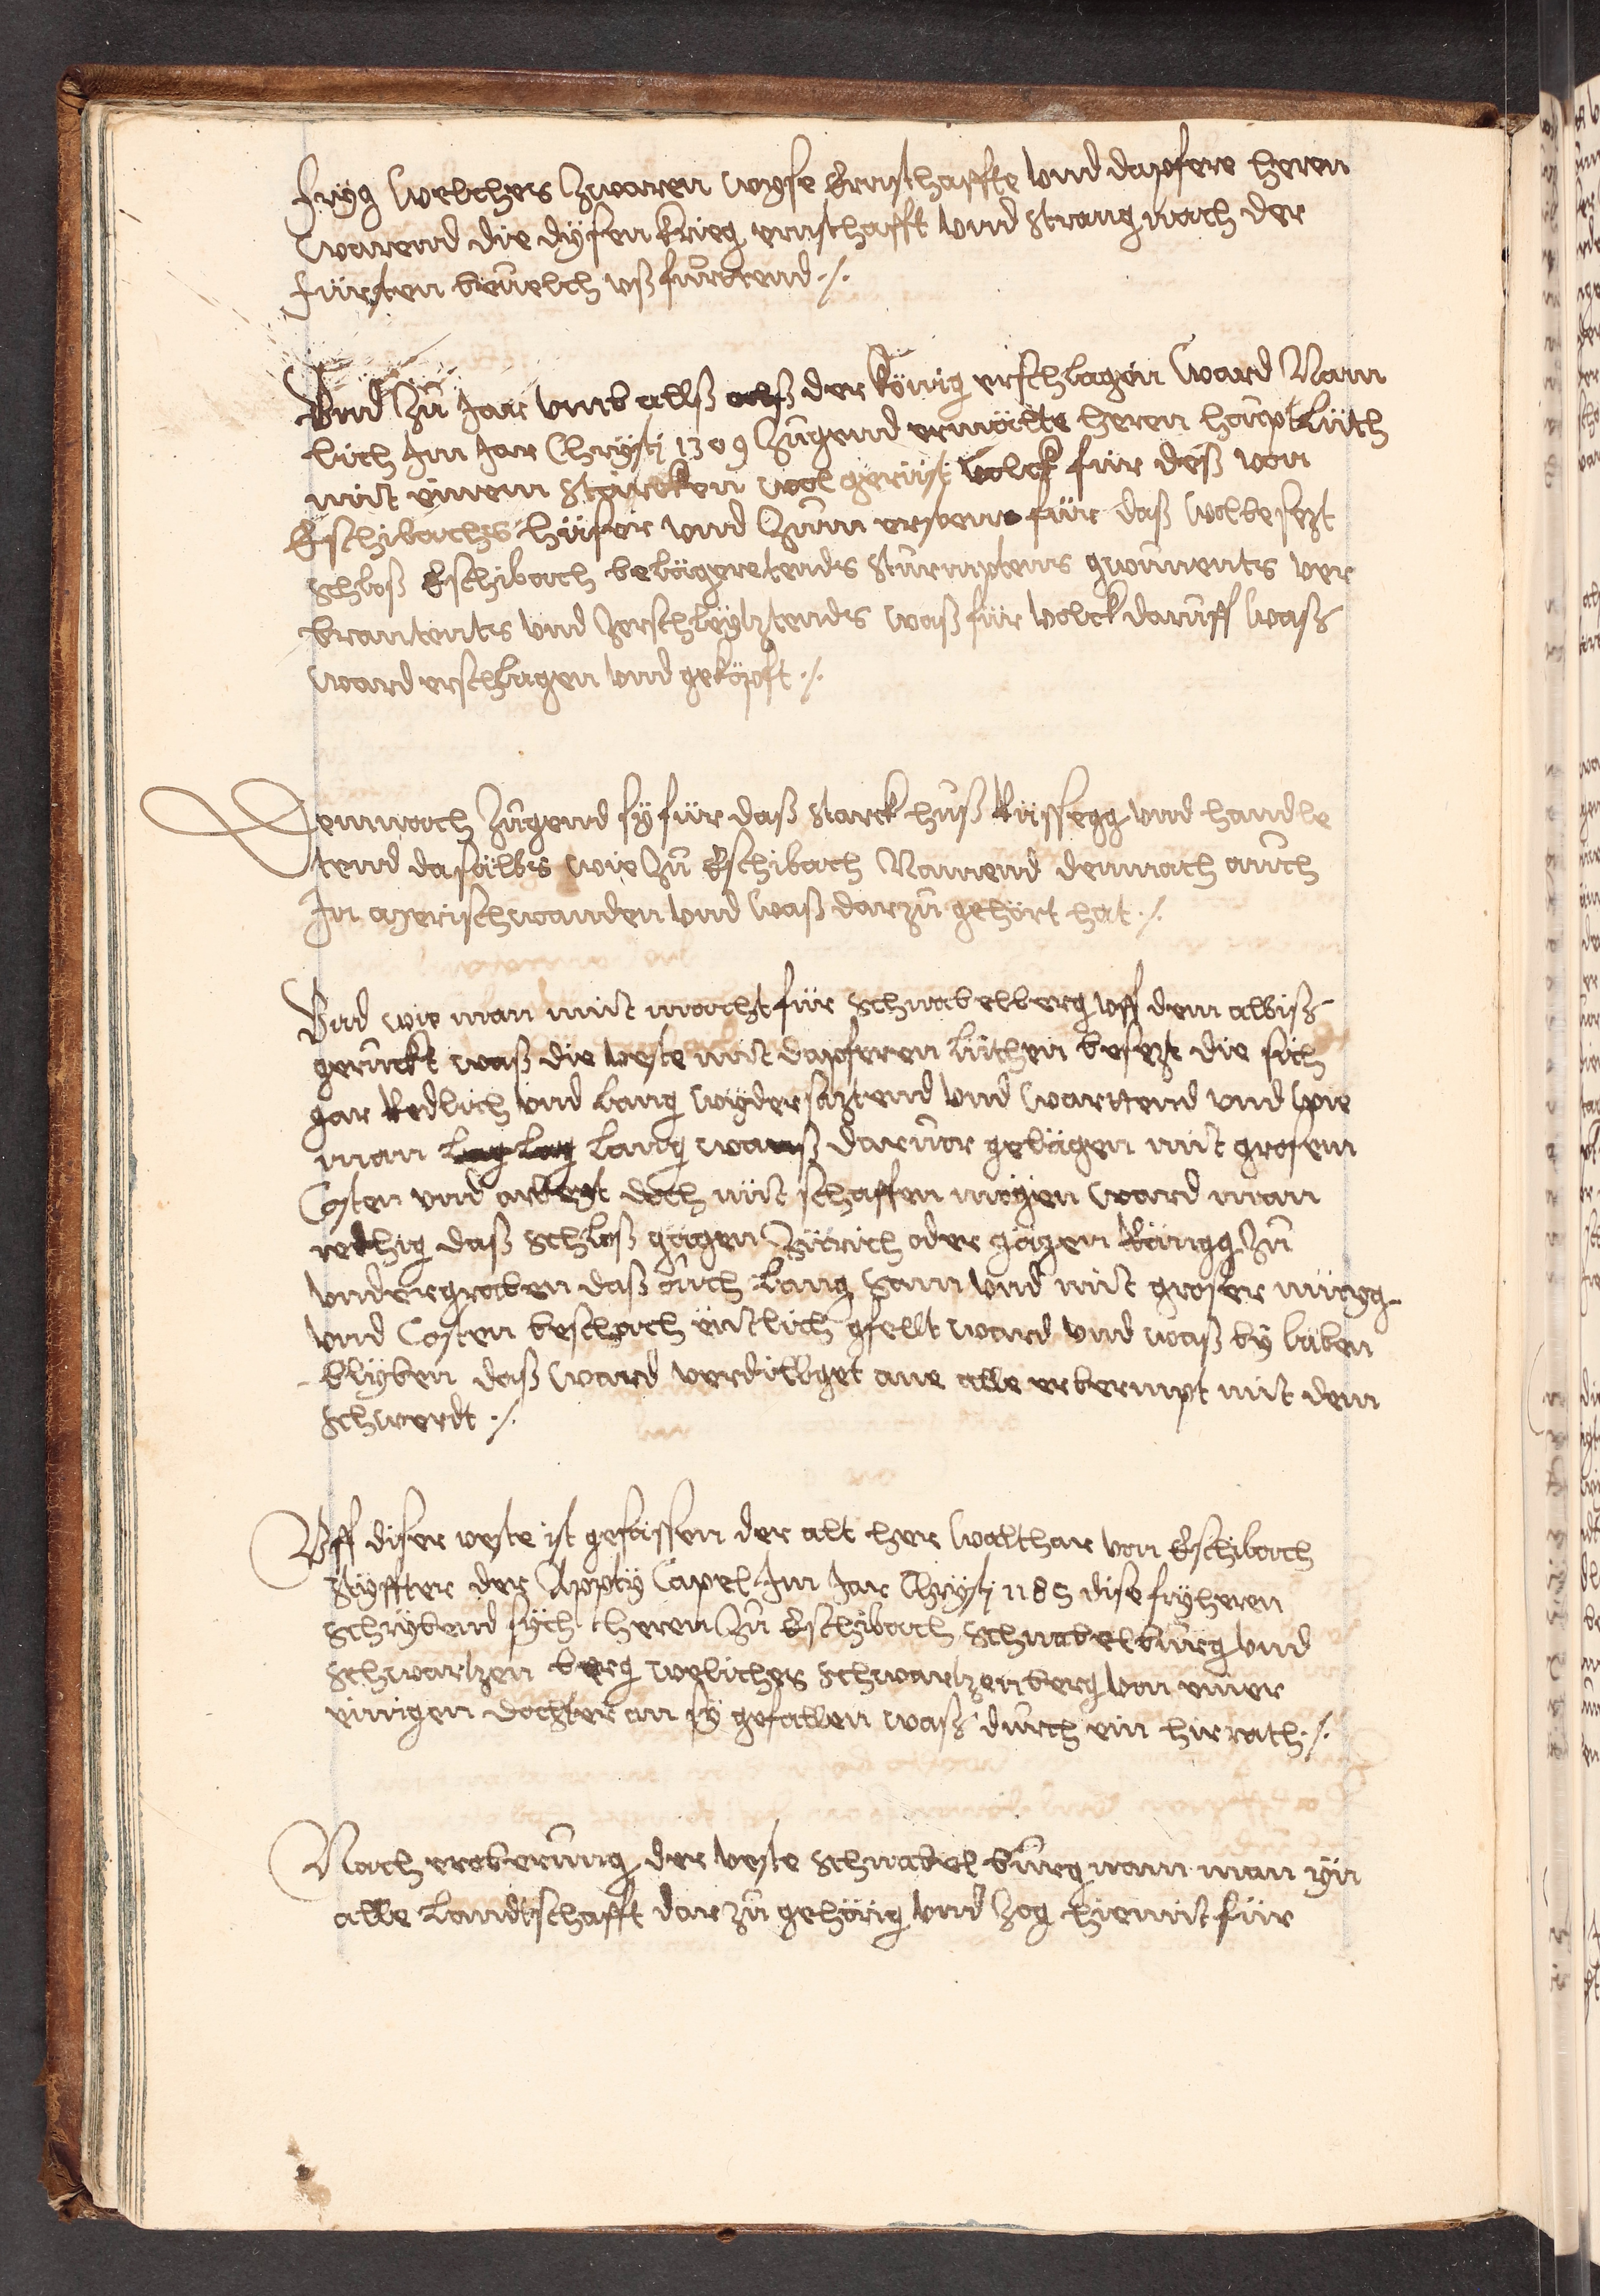 fryg welches zwaren wyse Ernsthaffte vnd dapfere heren
warend die dysen krieg ernsthafft vnd strang nach der
fürsten beuelch vß fürdtend ./.
Vnd zů Jar vmb allß der könig erschlagen ward Nam
lich Jm Jar Christj 1309 zugend ermälte heren houptlüth
mit einem starcken wol gerüst volck für deß von
Eschibachs hüser vnd zum ersten für daß wolbesezt
schloß Eschibach belägeretends sturmptens gwunnents ver
brantents vnd zerschleytztends waß für volck daruff waß
ward erschlagen vnd geköpft ./.
Demnach zugend sy für daß starck huß Rüssegg vnd handle
tend dasälbs wie zů Eschibach Namend demnach ouch
Jn Merischwanden vnd waß darzů gehört hat ./.
Vnd wie man mit macht für schnabelberg vff dem albiß
geruckt waß die veste mit dapferen lüthen besezt die sich
gar Redlich vnd lang wydersaztend vnd warttend vnd wie
man lang waß daruor gelägen mit grosem
Costen vnd arbeit doch nüt schaffen mögen ward man
rethig daß schloß gägen Zürich oder gägen Rängg zů
vndergraben daß ouch lang sam vnd mit groser müyg
vnd Costen beschach äntlich gfellt ward vnd waß by läben
blyben daß ward verdillget ane alle erbermpt mit dem
schwerdt ./.
Vff diser veste ist gesässen der alt her walthar von Eschibach
styffter der Appty Capel Jm Jar Christj 1185 dise fryheren
schrybend sych heren zů Eschibach schnabelburg vnd
schwartzen berg weliches schwartzenberg von einer
einigen dochter an sy gefallen waß durch ein hirrath ./.
Nach eroberung der veste schnabel burg nam man yn
alle landtschafft darzů gehörig vnd zog hiemit für